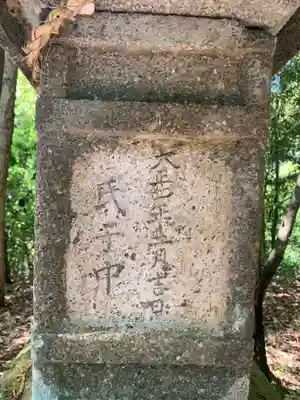 大正年月吉日
氏子中